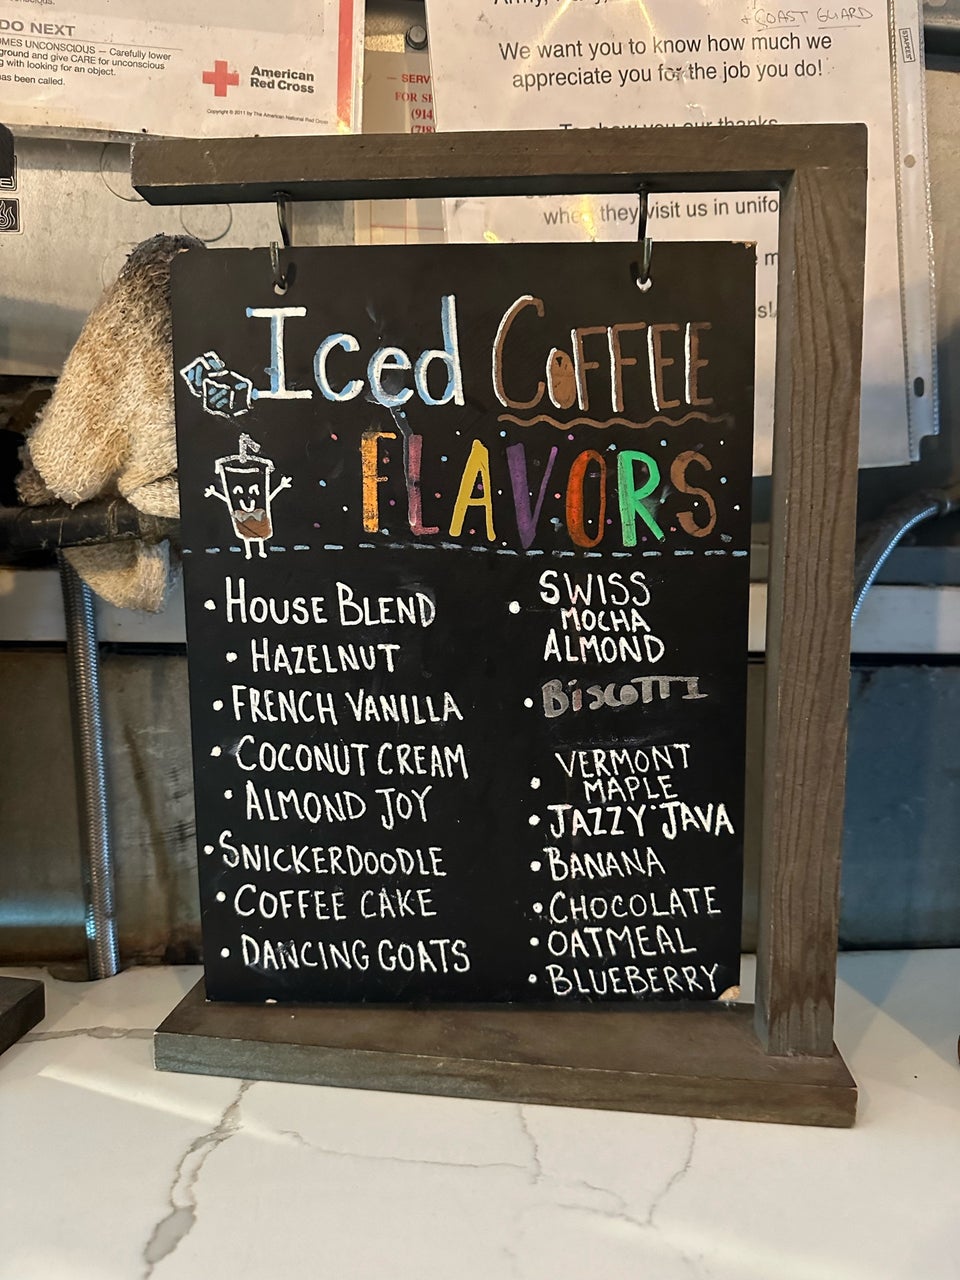 DO NEXT
OMES UNCONSCIOUS — Carefully lower
ground and give CARE for unconscious
g with looking for an object.
as been called.
American
Red Cross
Copyright © 2011 by The American National Red Cross
— SERV
FOR SE
(914
(718)
+ COAST GUARD
We want you to know how much we
appreciate you for the job you do!
To show you our thanks
when they visit us in unifo
STAPLES
Iced COFFEE
FLAVORS
• HOUSE BLEND
• HAZELNUT
• FRENCH VANILLA
• COCONUT CREAM
• ALMOND JOY
• SNICKERDOODLE
• COFFEE CAKE
• DANCING GOATS
• SWISS
MOCHA
ALMOND
• BiSCOTTI
• VERMONT
MAPLE
• JAZZY JAVA
• BANANA
• CHOCOLATE
• OATMEAL
• BLUEBERRY